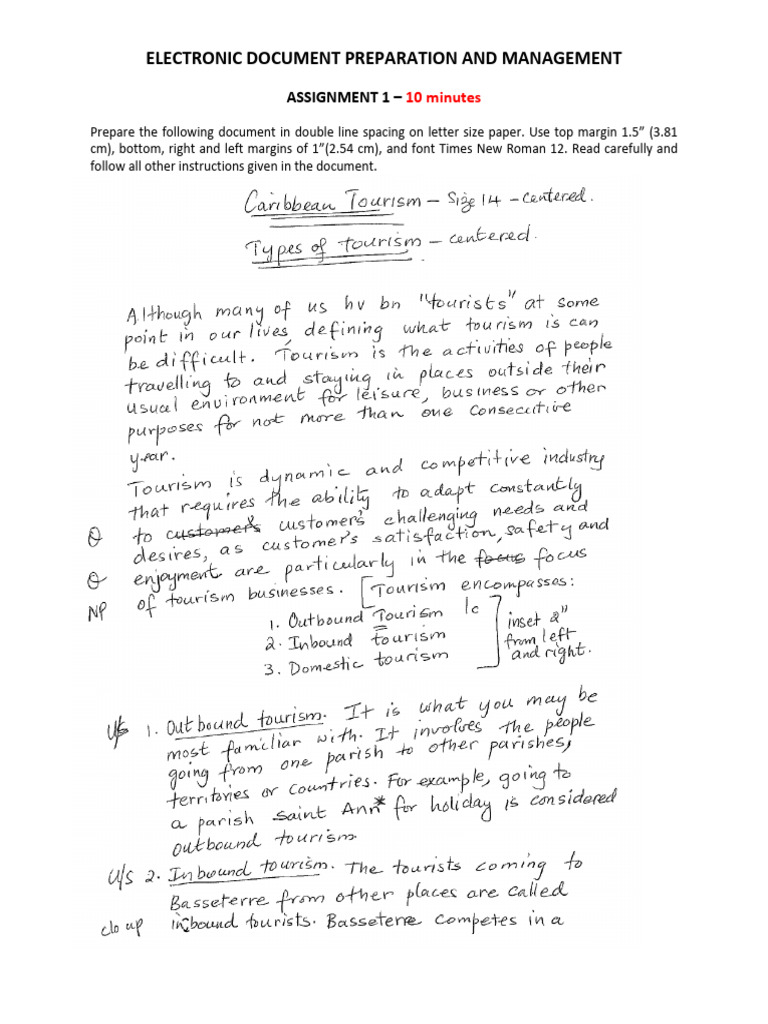 ELECTRONIC DOCUMENT PREPARATION AND MANAGEMENT
ASSIGNMENT 1 – 10 minutes
Prepare the following document in double line spacing on letter size paper. Use top margin 1.5” (3.81
cm), bottom, right and left margins of 1”(2.54 cm), and font Times New Roman 12. Read carefully and
follow all other instructions given in the document.
Caribbean Tourism – Size 14 – centered.
Types of tourism – centered.
Although many of us hv bn "tourists" at some
point in our lives, defining what tourism is can
be difficult. Tourism is the activities of people
travelling to and staying in places outside their
usual environment for leisure, business or other
purposes for not more than one consecutive
year.
Tourism is dynamic and competitive industry
that requires the ability to adapt constantly
to customer's customer's challenging needs and
desires, as customer's satisfaction, safety and
enjoyment are particularly in the focus focus
NP of tourism businesses. [Tourism encompasses:
1. Outbound Tourism lc
2. Inbound tourism
3. Domestic tourism
inset 2"
from left
and right.
U/s 1. Outbound tourism. It is what you may be
most familiar with. It involves the people
going from one parish to other parishes,
territories or countries. For example, going to
a parish Saint Ann* for holiday is considered
outbound tourism.
U/S 2. Inbound tourism. The tourists coming to
Basseterre from other places are called
clo up in bound tourists. Basseterre competes in a